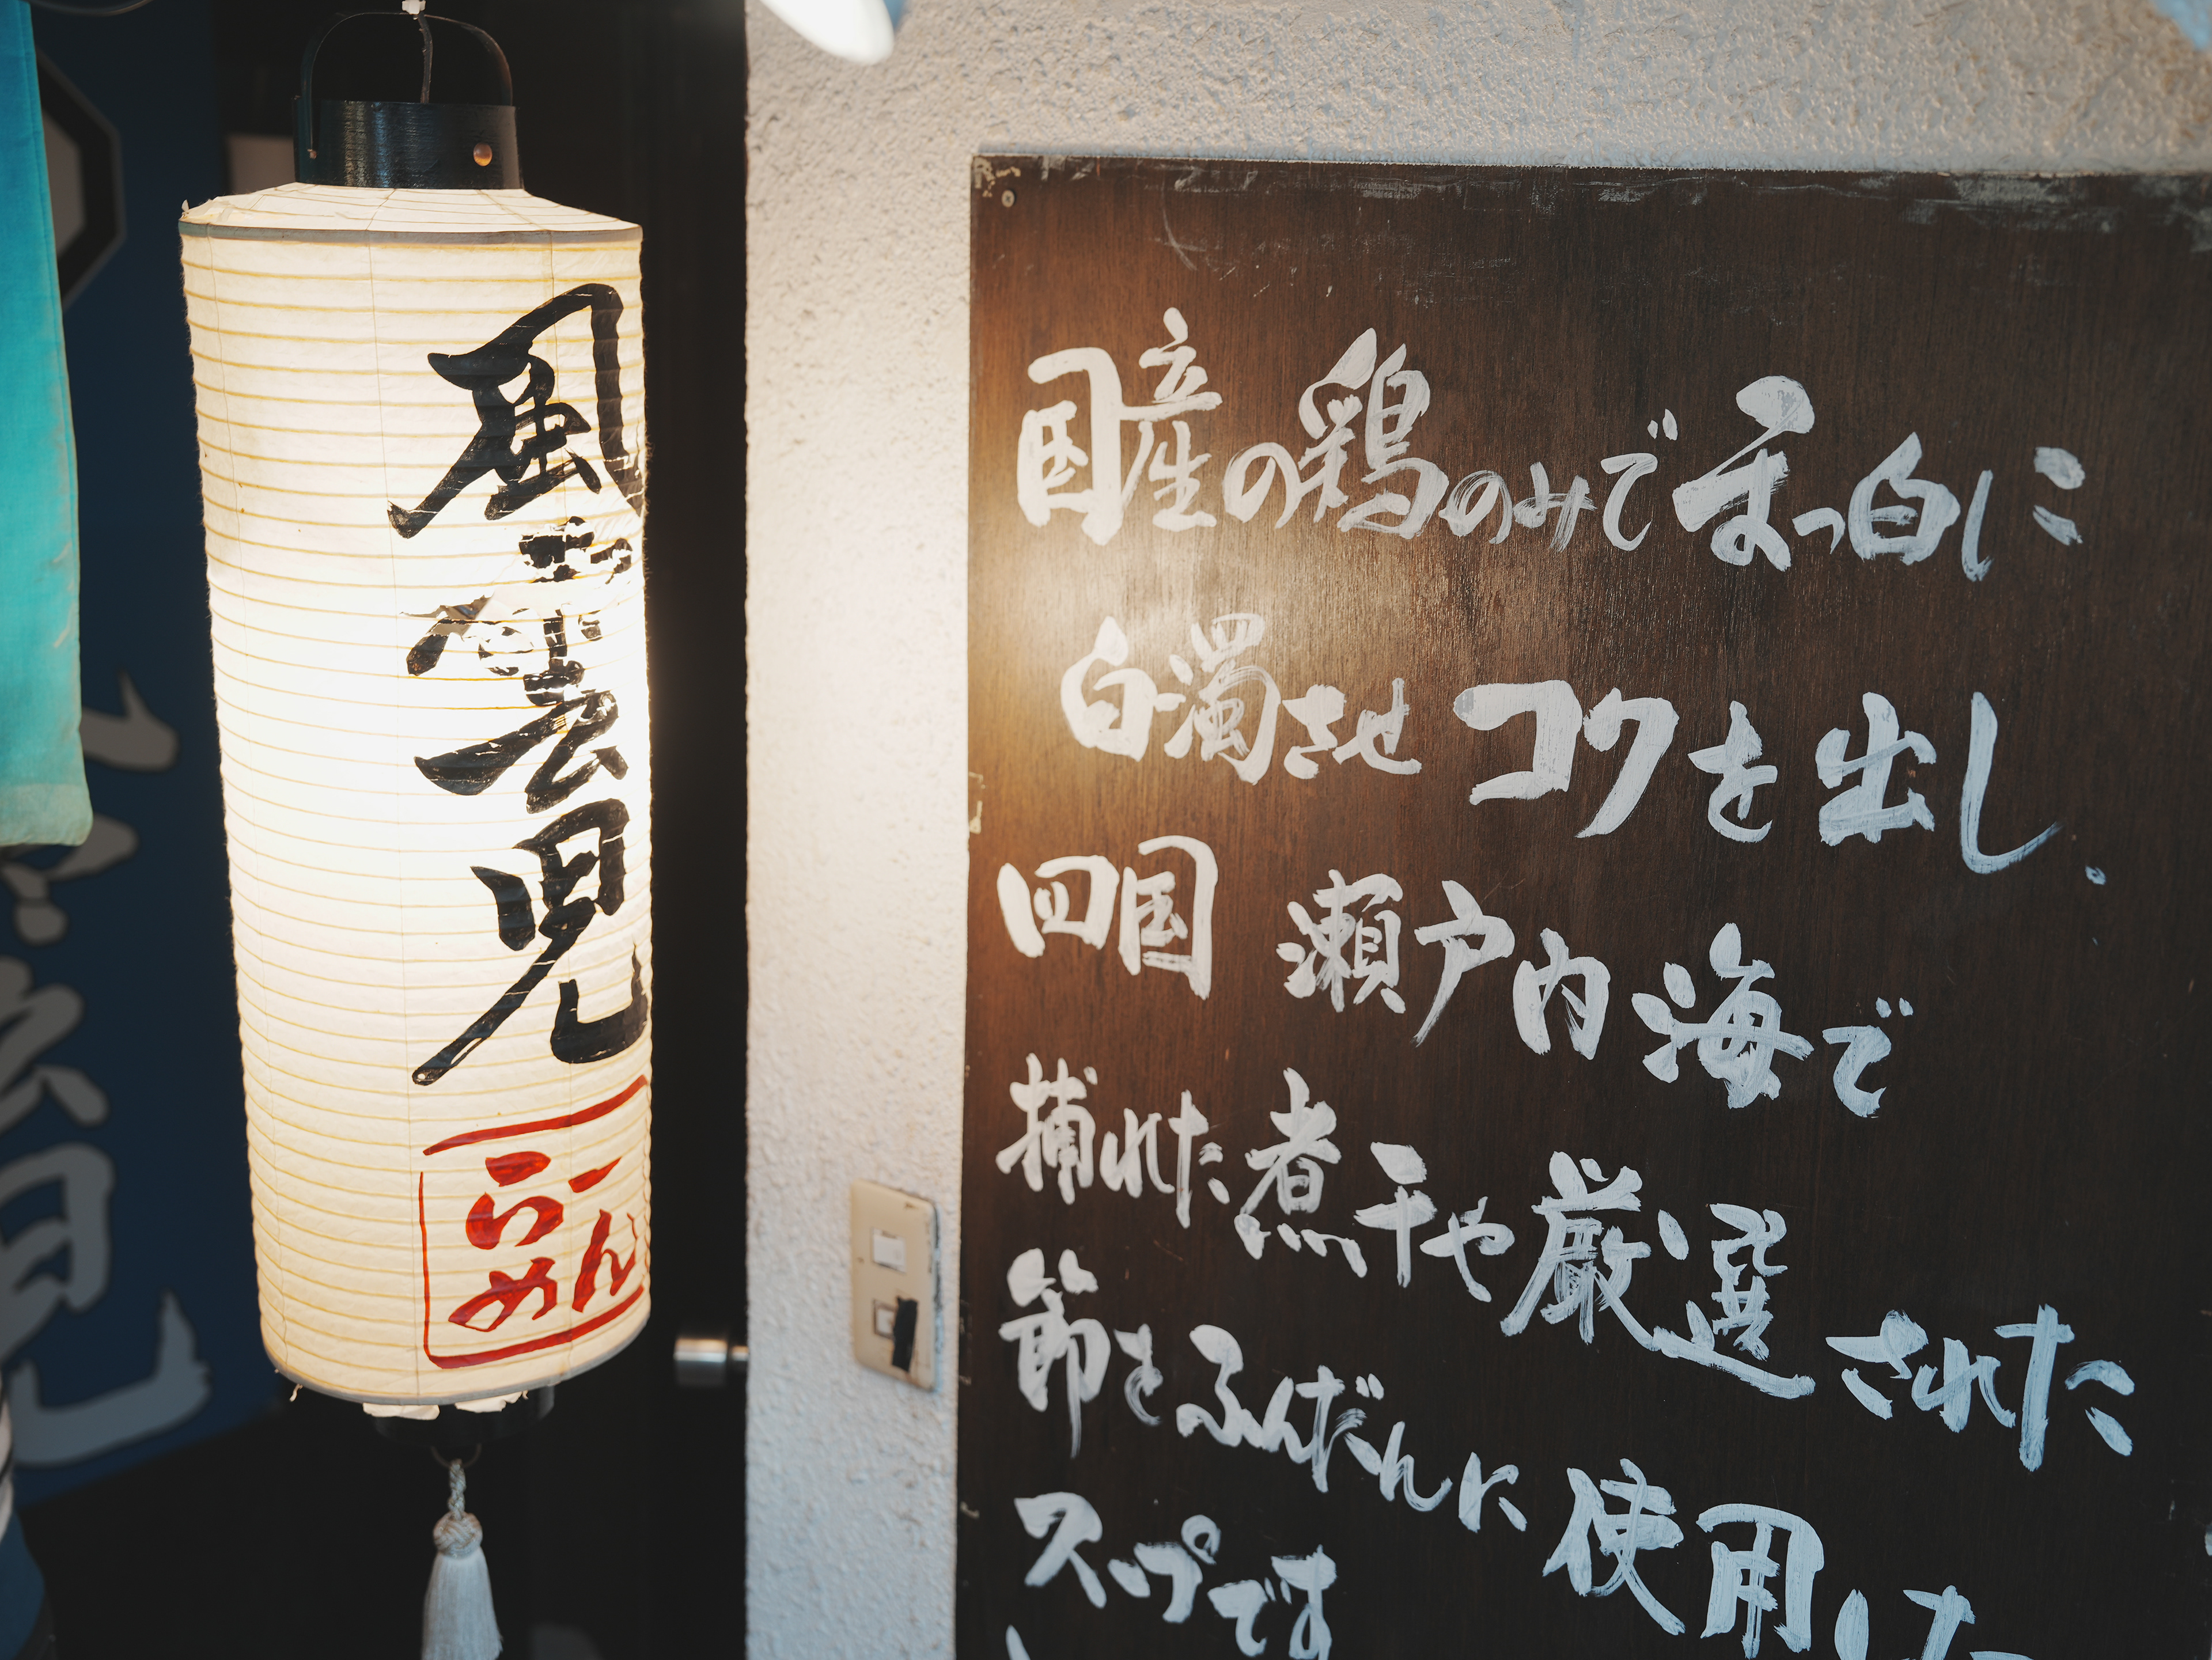 風雲児
らーめん
国産の鶏のみでまっ白に
白濁させコクを出し、
四国 瀬戸内海で
捕れた煮干や厳選された
節をふんだんに使用した
スープです